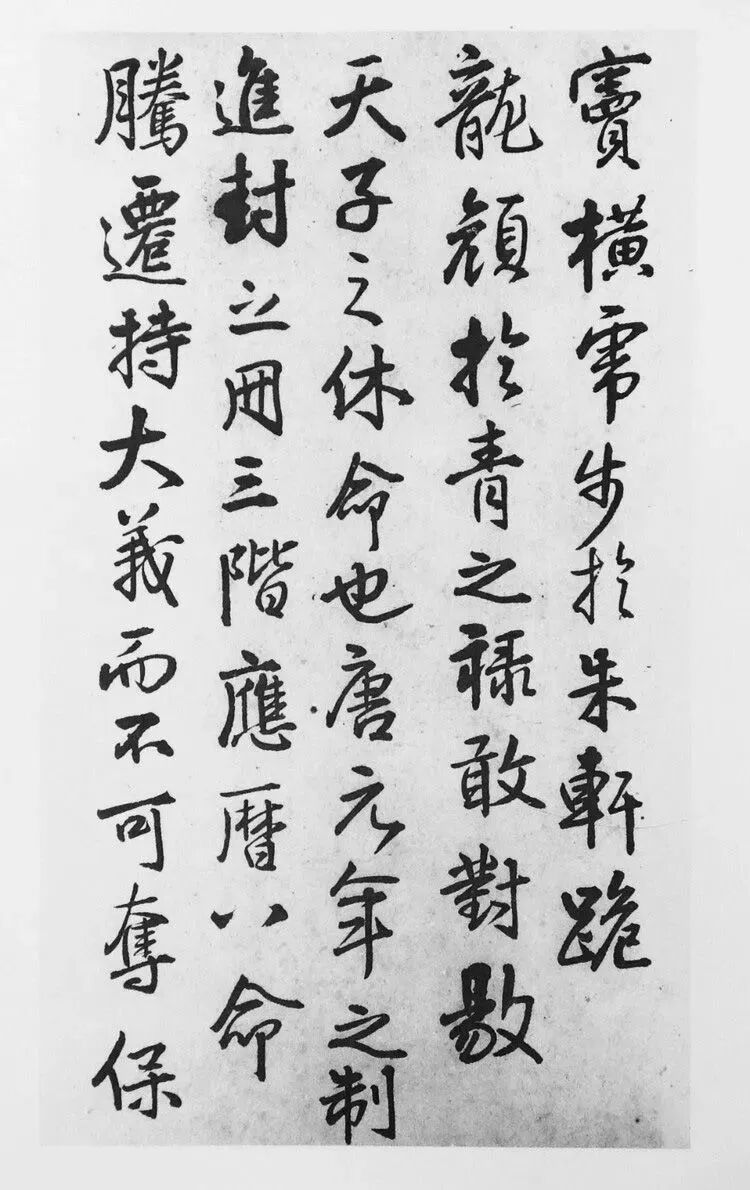 橫步於朱軒跪
龍顏於青之祿敢對敭
天子之休命也唐元年之制
進封之冊三階應曆八命
騰遷持大義而不可奪保